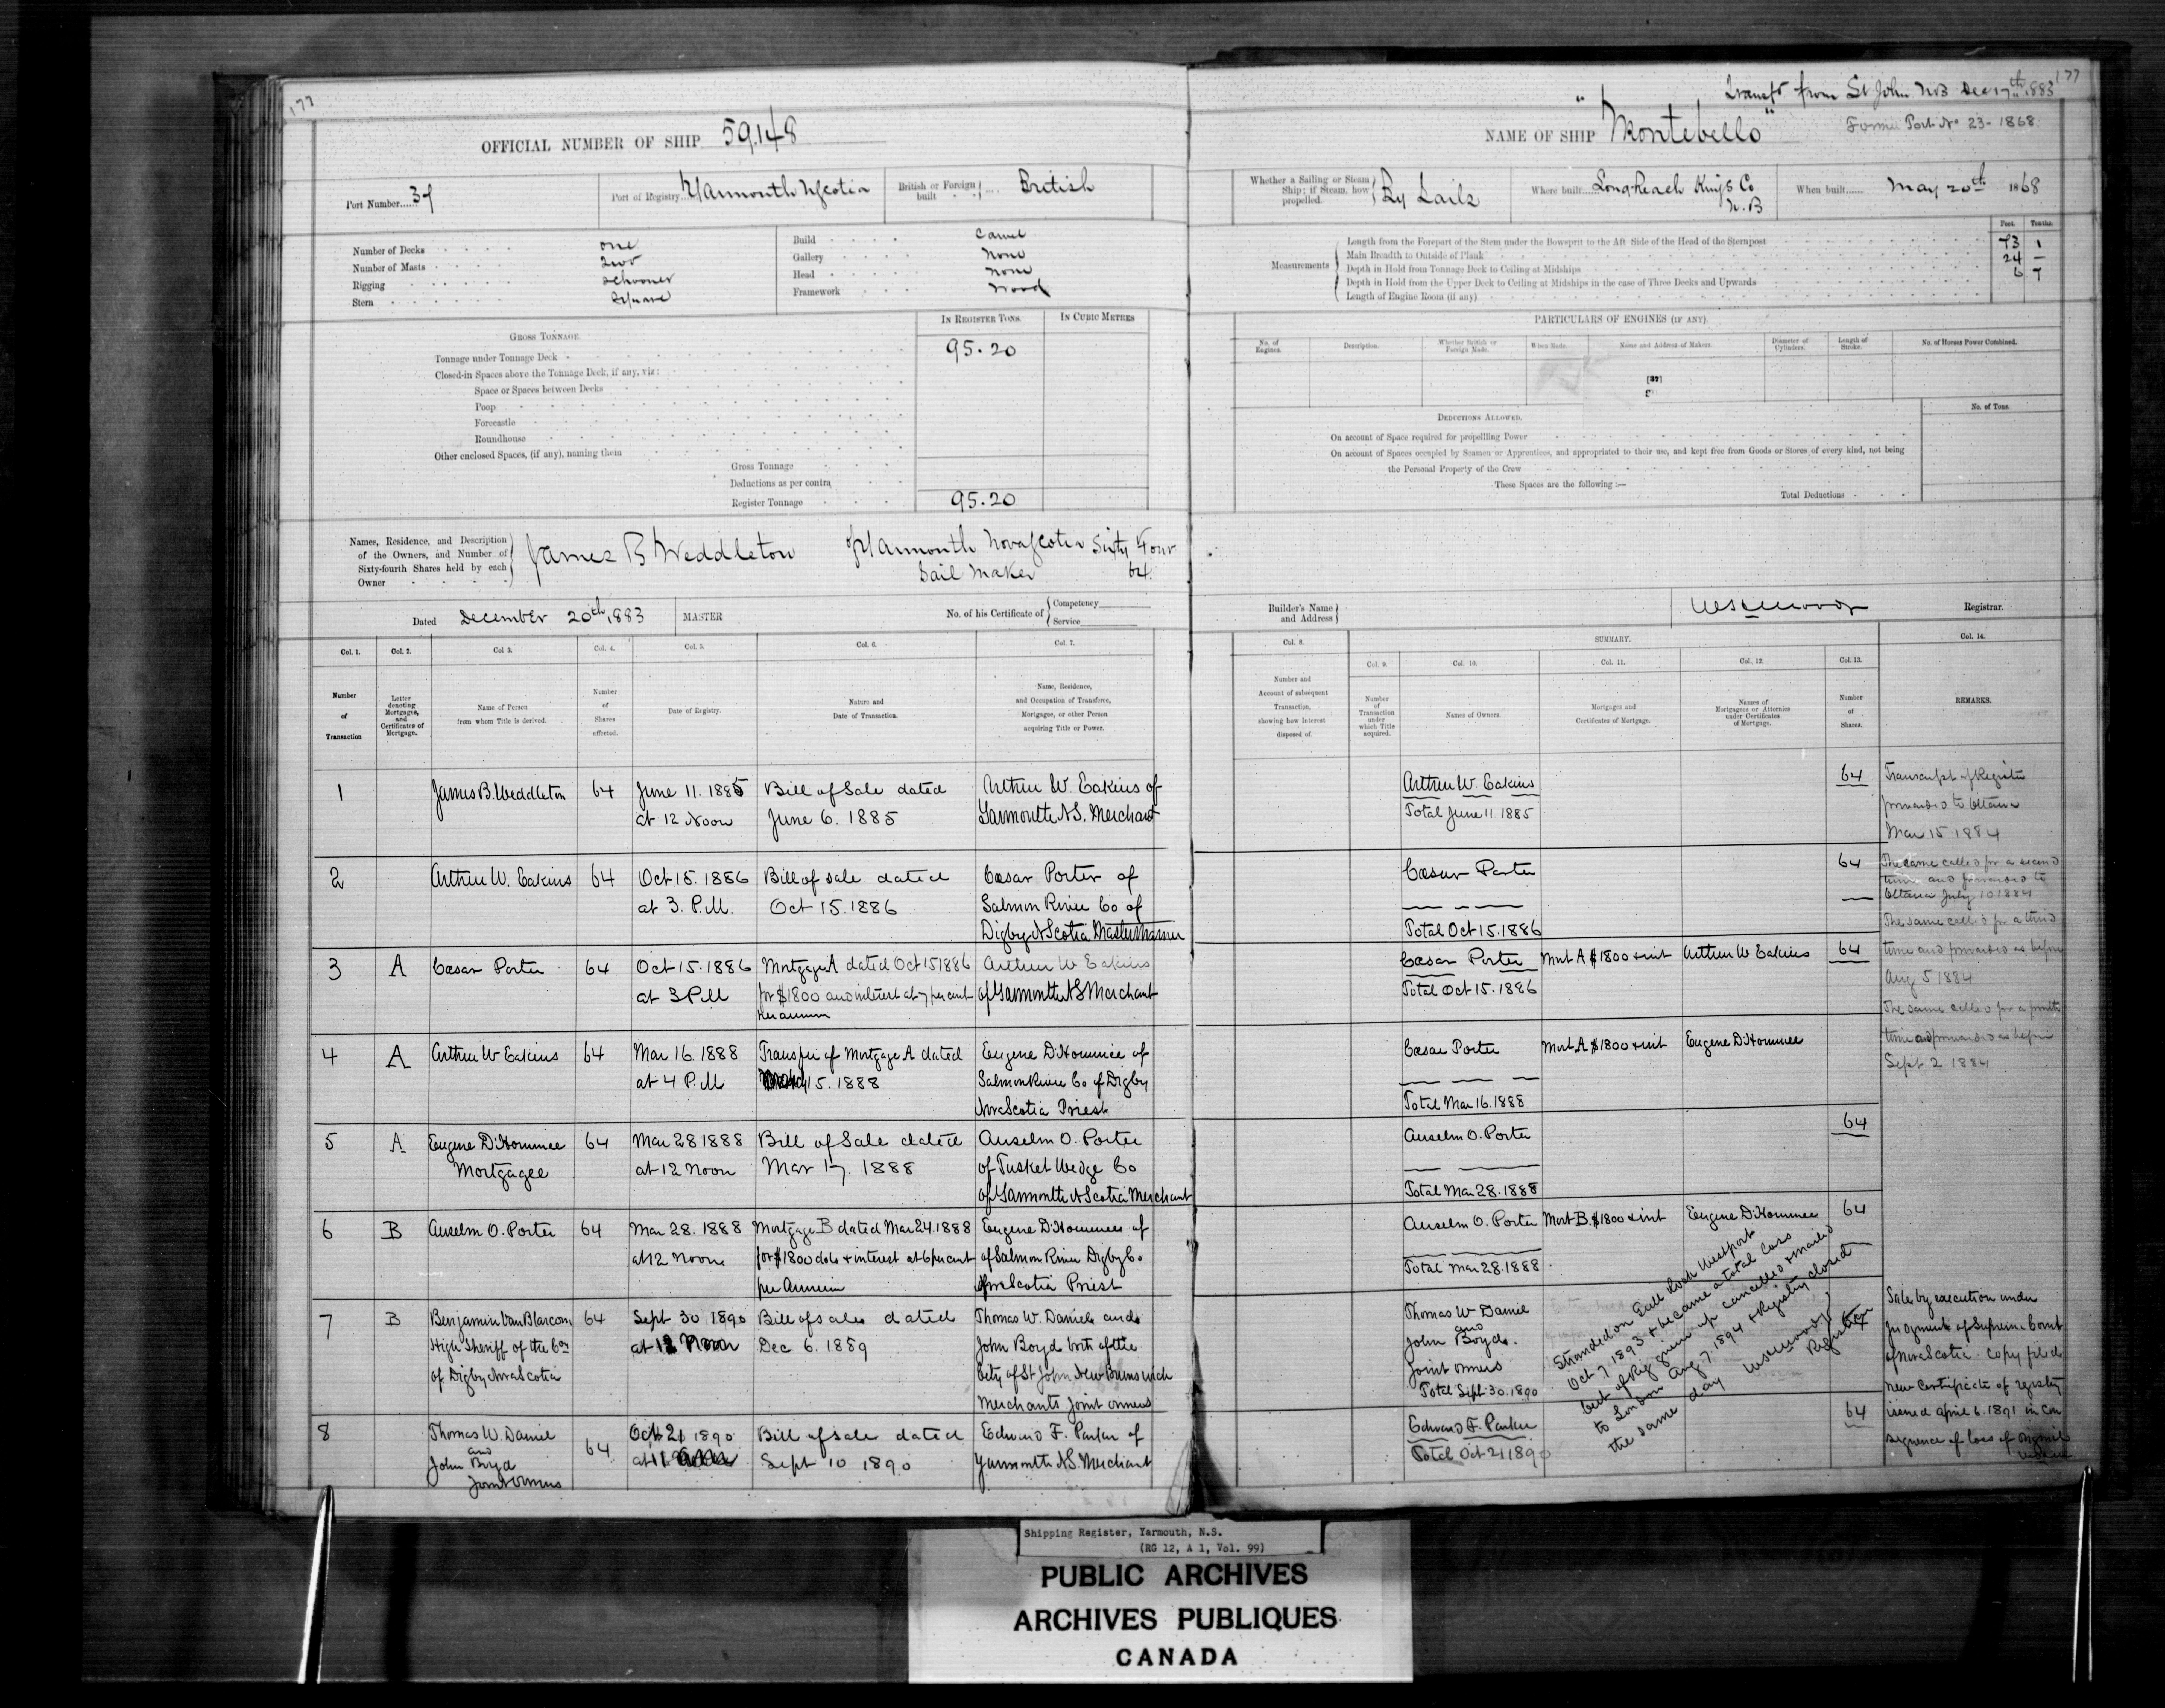 177
OFFICIAL NUMBER OF SHIP 59.148
Port Number....37
Port of Registry...Yarmouth NScotia
British or Foreign built .... British
Number of Decks one
Number of Masts Two
Rigging Schooner
Stern Square
Build Carvel
Gallery None
Head None
Framework Wood
IN REGISTER TONS.
IN CUBIC METRES
GROSS TONNAGE.
Tonnage under Tonnage Deck 95.20
Closed-in Spaces above the Tonnage Deck, if any, viz:
Space or Spaces between Decks
Poop
Forecastle
Roundhouse
Other enclosed Spaces, (if any), naming them
Gross Tonnage
Deductions as per contra
Register Tonnage 95.20
Names, Residence, and Description
of the Owners, and Number of
Sixty-fourth Shares held by each
Owner
James B Weddleton of Yarmouth Nova Scotia Sixty Four
Sail Maker 64
Dated December 20th 1883 MASTER
No. of his Certificate of Competency
Service
Col. 1. Col. 2. Col 3. Col. 4. Col. 5. Col. 6. Col. 7.
Number of Transaction
Letter denoting Mortgages, and Certificates of Mortgage.
Name of Person from whom Title is derived.
Number of Shares effected.
Date of Registry.
Nature and Date of Transaction.
Name, Residence, and Occupation of Transferee, Mortgagee, or other Person acquiring Title or Power.
1 James B. Weddleton 64 June 11. 1885 Bill of Sale dated Arthur W. Eakins of
at 12 Noon June 6. 1885 Yarmouth N.S. Merchant
2 Arthur W. Eakins 64 Oct 15. 1886 Bill of sale dated Cæsar Porter of
at 3. P.M. Oct 15. 1886 Salmon River Co of
Digby NScotia Master Mariner
3 A Cæsar Porter 64 Oct 15. 1886 Mortgage A dated Oct 15 1886 Arthur W Eakins
at 3 P.M for $1800 and interest at 7 per cent of Yarmouth NS Merchant
per annum
4 A Arthur W Eakins 64 Mar 16. 1888 Transfer of Mortgage A dated Eugene D'Hommée of
at 4 P.M 15. 1888 Salmon River Co of Digby
Nova Scotia Priest
5 A Eugene D'Hommee 64 Mar 28 1888 Bill of Sale dated Anselm O. Porter
Mortgagee at 12 Noon Mar 17. 1888 of Tusket Wedge Co
of Yarmouth NScotia Merchant
6 B Anselm O. Porter 64 Mar 28. 1888 Mortgage B dated Mar 24. 1888 Eugene D'Hommee of
at 12 Noon for $1800 dols & interest at 6 per cent of Salmon River Digby Co
per Annum Nova Scotia Priest
7 B Benjamin Van Blarcom 64 Sept 30 1890 Bill of sale dated Thomas W. Daniel and
High Sheriff of the Co at 12 Noon Dec 6. 1889 John Boyd both of the
of Digby Nova Scotia City of St John New Brunswick
Merchants Joint owners
8 Thomas W. Daniel 64 Oct 21 1890 Bill of Sale dated Edward F. Parker of
and at 11 Sept 10 1890 Yarmouth NS. Merchant
John Boyd
Joint Owners
177
Transfd from St John NB Dec 17th 1883
NAME OF SHIP "Montebello"
Former Port No 23 - 1868
Whether a Sailing or Steam Ship; if Steam, how propelled. By Sails
Where built......Long Reach Kings Co
N.B
When built...... May 20th 1868
Feet. Tenths.
Measurements
Length from the Forepart of the Stem under the Bowsprit to the Aft Side of the Head of the Sternpost 73 1
Main Breadth to Outside of Plank 24 –
Depth in Hold from Tonnage Deck to Ceiling at Midships 6 7
Depth in Hold from the Upper Deck to Ceiling at Midships in the case of Three Decks and Upwards
Length of Engine Room (if any)
PARTICULARS OF ENGINES (IF ANY).
No. of Engines.
Description.
Whether British or Foreign Made.
When Made.
Name and Address of Makers.
Diameter of Cylinders.
Length of Stroke.
No. of Horses Power Combined.
DEDUCTIONS ALLOWED.
No. of Tons.
On account of Space required for propellling Power
On account of Spaces occupied by Seamen or Apprentices, and appropriated to their use, and kept free from Goods or Stores of every kind, not being
the Personal Property of the Crew
These Spaces are the following :—
Total Deductions
Builder's Name and Address
Registrar.
SUMMARY.
Col. 8. Col. 9. Col. 10. Col. 11. Col. 12. Col. 13. Col. 14.
Number and Account of subsequent Transaction, showing how Interest disposed of.
Number of Transaction under which Title acquired.
Names of Owners.
Mortgages and Certificates of Mortgage.
Names of Mortgagees or Attornies under Certificates of Mortgage.
Number of Shares.
REMARKS.
Arthur W. Eakins 64
Total June 11. 1885
Cæsar Porter 64
Total Oct 15. 1886
Cæsar Porter Mort A $1800 & int Arthur W Eakins 64
Total Oct 15. 1886
Cæsar Porter Mort. A $1800 & int Eugene D'Hommee
Total Mar 16. 1888
Anselm O. Porter 64
Total Mar 28. 1888
Anselm O. Porter Mort B. $1800 & int Eugene D'Hommee 64
Total Mar 28. 1888
Thomas W Daniel
and
John Boyd.
Joint owners 64
Total Sept 30. 1890
Edward F. Parker 64
Total Oct 21 1890
Stranded on Gull Rock Westport
Oct 7. 1893 & became a total loss
Cert of Reg given up cancelled & mailed
to London Aug 7. 1894 & Registry closed
the same day
Registrar
Transcript of Register
forwarded to Ottawa
Mar 15 1884
The same called for a second
time and forwarded to
Ottawa July 10 1884
The same called for a third
time and forwarded as before
Aug 5 1884
The same called for a fourth
time and forwarded as before
Sept 2 1884
Sale by execution under
Judgment of Supreme Court
of Nova Scotia. Copy filed
New Certificate of registry
issued April 6. 1891 in con
sequence of loss of original
Shipping Register, Yarmouth, N.S.
(RG 12, A 1, Vol. 99)
PUBLIC ARCHIVES
ARCHIVES PUBLIQUES
CANADA